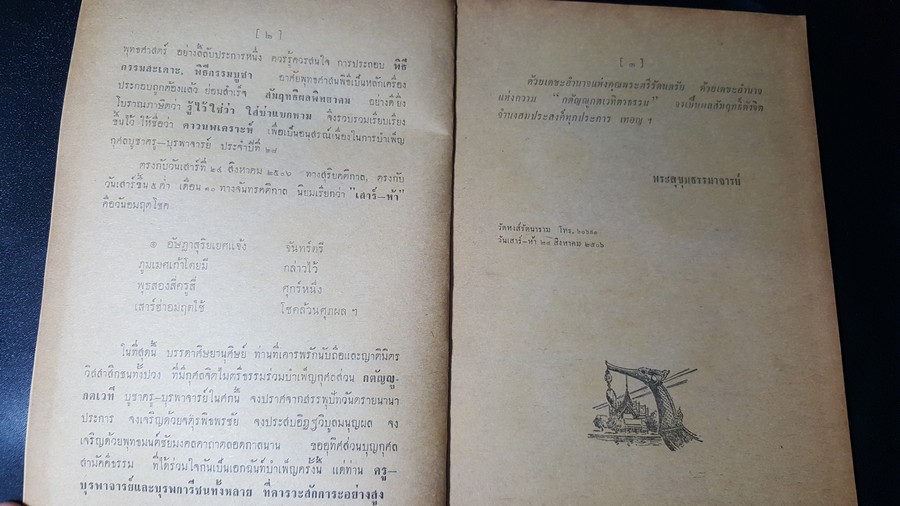 [ ๒ ]
พุทธศาสตร์ อย่างลี้ลับประการหนึ่ง ควรรู้ควรสนใจ การประกอบ พิธี
กรรมสะเดาะ, พิธีกรรมบูชา อาศัยพุทธศาสนพิธีเป็นหลักเครื่อง
ประกอบถูกต้องแล้ว ย่อมสำเร็จ สัมฤทธิผลพิทยาคม อย่างดียิ่ง
โบราณภาษิตว่า รู้ไว้ใช่ว่า ใส่บ่าแบกหาม จึงรวบรวมเรียบเรียง
ขึ้นไว้ ให้ชื่อว่า ภาวนพเคราะห์ เพื่อเป็นอนุสรณ์เนื่องในการบำเพ็ญ
กุศลบูชาครู—บุรพาจารย์ ประจำปีที่ ๒๘
ตรงกับวันเสาร์ที่ ๒๔ สิงหาคม ๒๕๐๖ ทางสุริยคติกาล, ตรงกับ
วันเสาร์ขึ้น ๕ ค่ำ เดือน ๑๐ ทางจันทรคติกาล นิยมเรียกว่า "เสาร์—ห้า"
คือวันอมฤตโชค
๏ อัษฎาสุริยเยศแจ้ง จันทร์ตรี
ภูมเมศเก้าโดยมี กล่าวไว้
พุธสองสี่ครูสี่ ศุกร์หนึ่ง
เสาร์ห้าอมฤตใช้ โชคล้วนศุภผล ฯ
ในที่สุดนี้ บรรดาศิษยานุศิษย์ ท่านที่เคารพรักนับถือและญาติมิตร
วิสสาสิกชนทั้งปวง ที่มีกุศลจิตไมตรีธรรมร่วมบำเพ็ญกุศลส่วน กตัญญู-
กตเวที บูชาครู—บุรพาจารย์ในศกนี้ จงปราศจากสรรพอุปัทวันตรายนานา
ประการ จงเจริญด้วยจตุรพิธพรชัย จงประสบอิฏฐวิบูลมนุญผล จง
เจริญด้วยพุทธมนต์ชัยมงคลคาถาตลอดกาลนาน ขออุทิศส่วนบุญกุศล
สามัคคีธรรม ที่ได้ร่วมใจกันเป็นเอกฉันท์บำเพ็ญครั้งนี้ แด่ท่าน ครู—
บุรพาจารย์และบุรพการีชนทั้งหลาย ที่คารวะสักการะอย่างสูง
[ ๓ ]
ด้วยเดชะอำนาจแห่งคุณพระศรีรัตนตรัย ด้วยเดชะอำนาจ
แห่งความ "กตัญญูกตเวทิตาธรรม" จงเป็นผลสัมฤทธิ์ดังจิต
จำนงสมประสงค์ทุกประการ เทอญ ฯ
พระสุขุมธรรมาจารย์
วัดหงส์รัตนาราม โทร.
วันเสาร์-ห้า ๒๔ สิงหาคม ๒๕๐๖